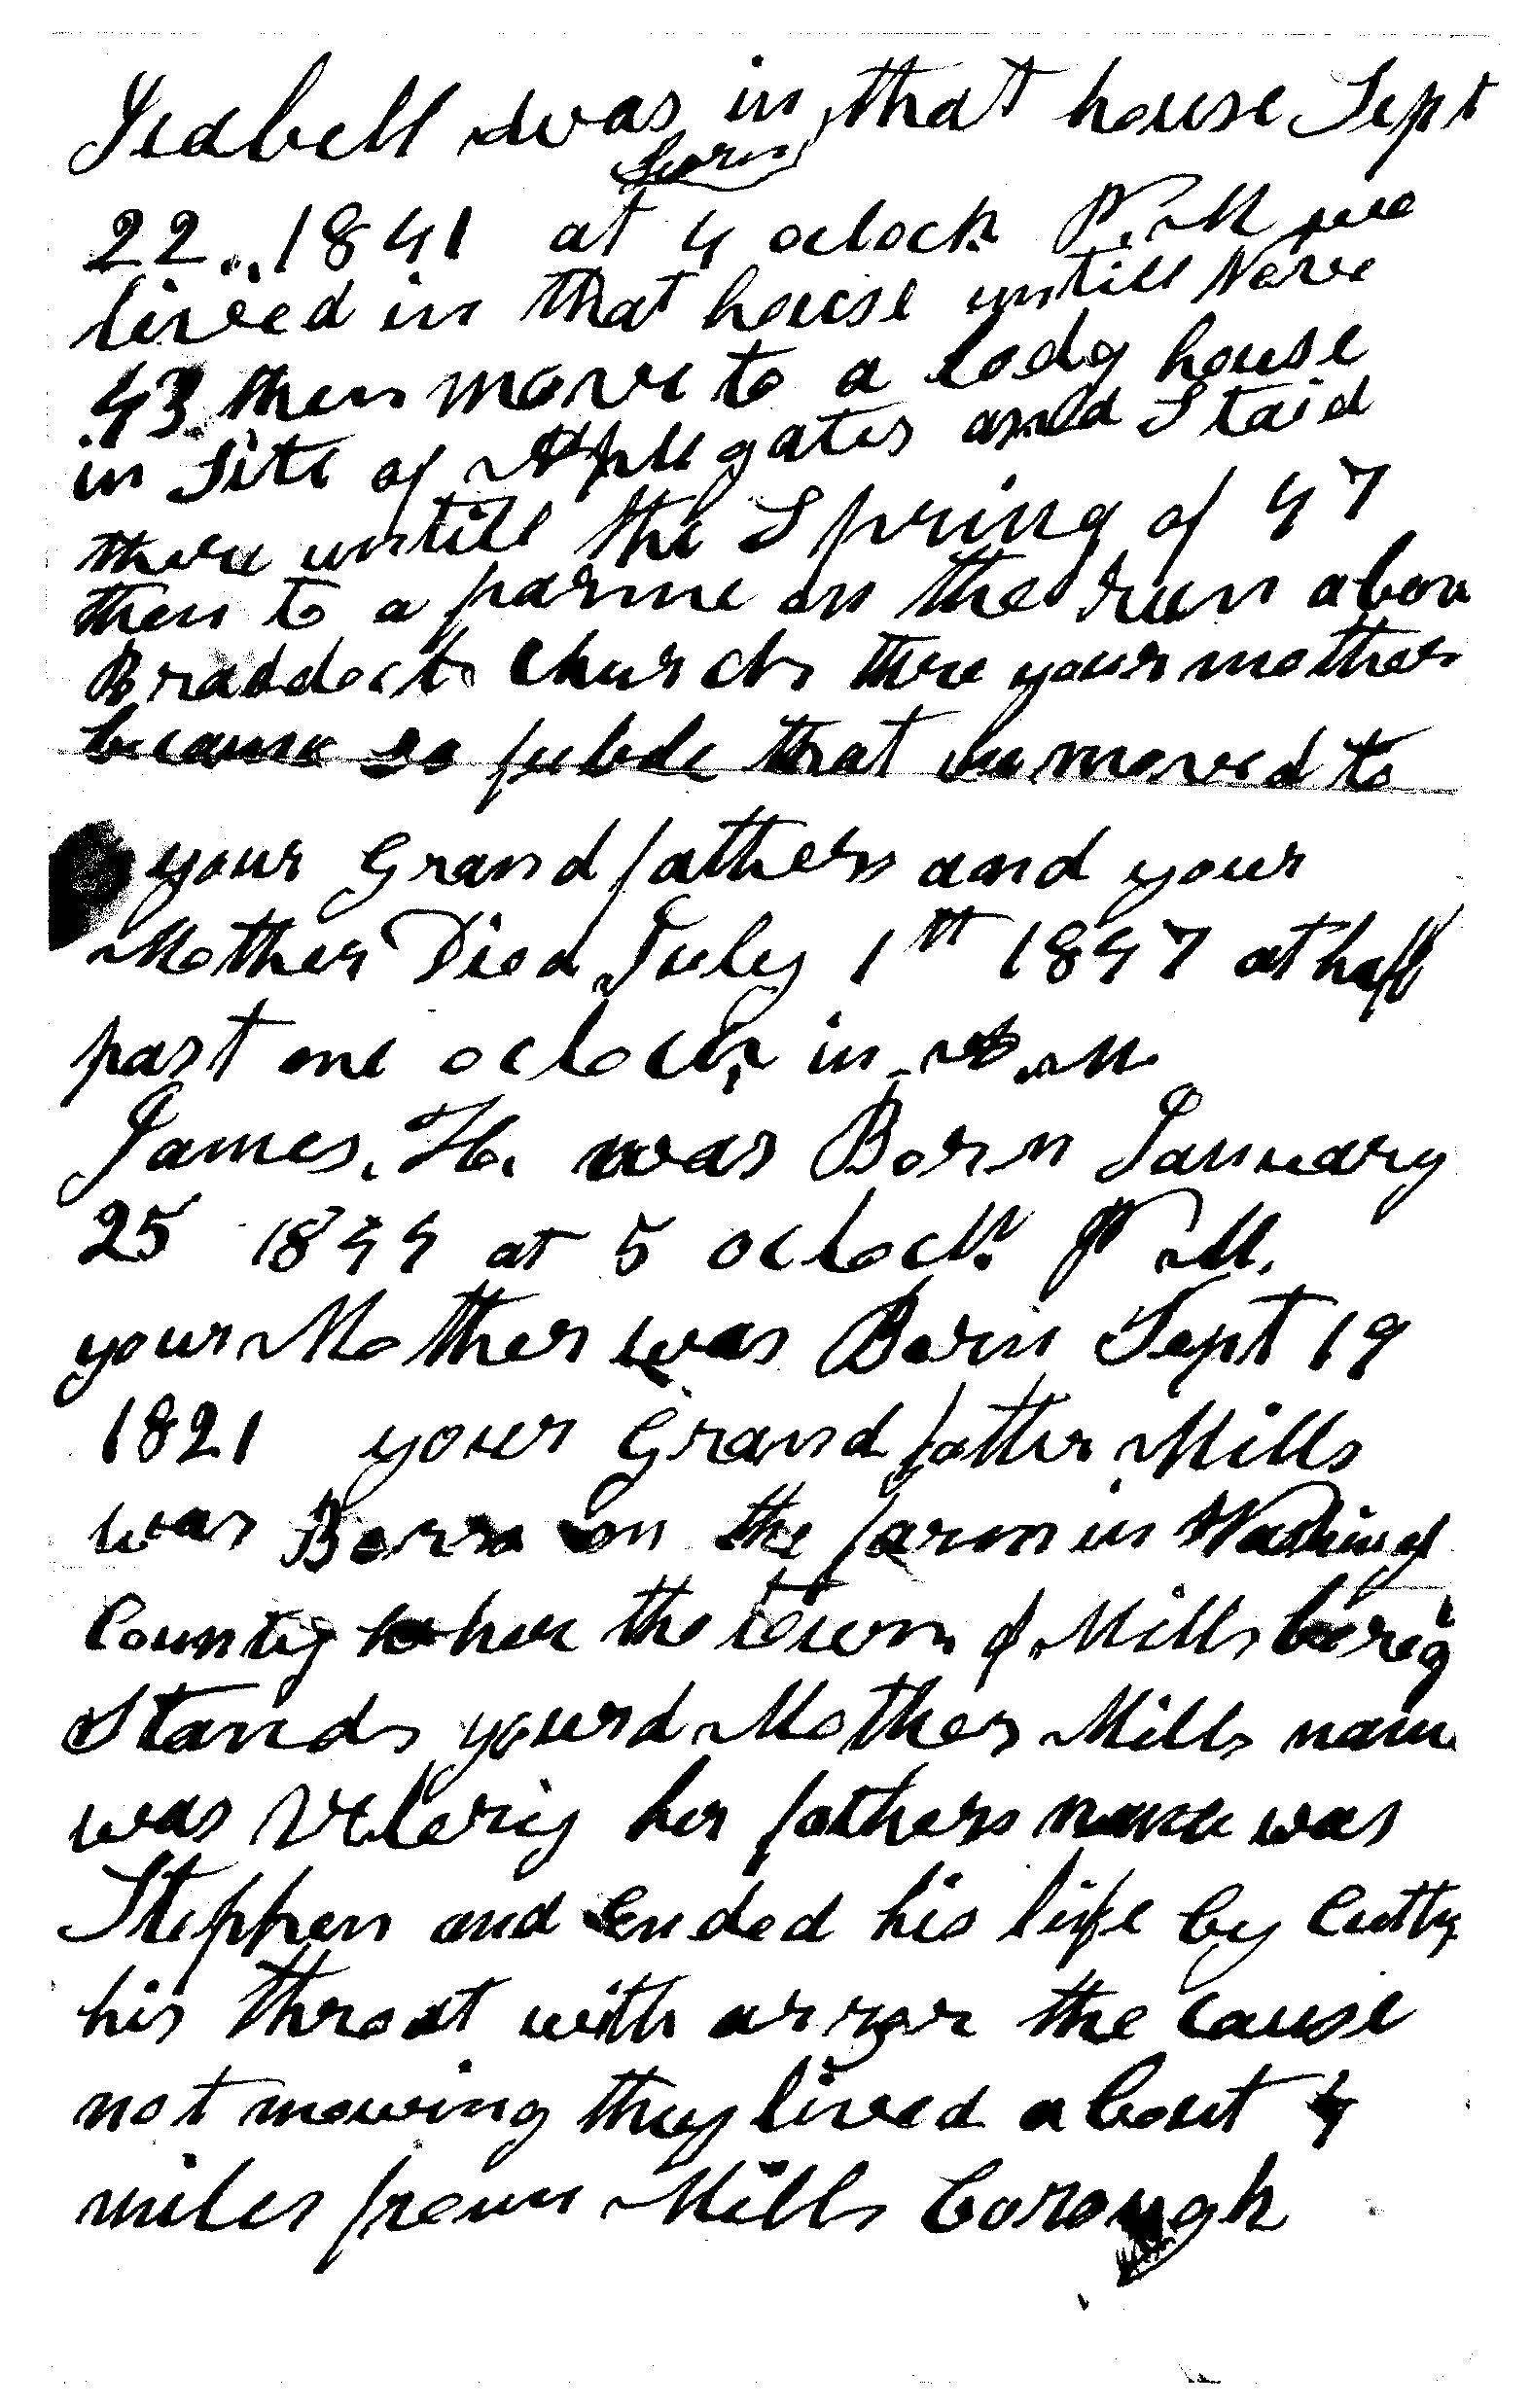 Isabell was born in that house Sept
22.. 1841 at 4 oclock P. M we
lived in that house untill Nove
43 then move to a lodg house
in Site of Applegates and Staid
there untill the Spring of 47
then to a farme on the run abov
Braddock Church there your mother
became so feeble that we moved to
your Grand fathers and your
Mother Died July 1th 1847 at half
past one oclock in A. M.
James. H. was Born January
25 1844 at 5 oclock P M.
your Mother was Born Sept 19
1821 your Grand father Mills
was Born on the farm in Washing
County wher the town of Mills boroug
Stands your Mother Mills name
was Velery her fathers name was
Stephen and Ended his life by Cutty
his throat with arrzor the cause
not mowing they lived about 4
miles from Mills borough